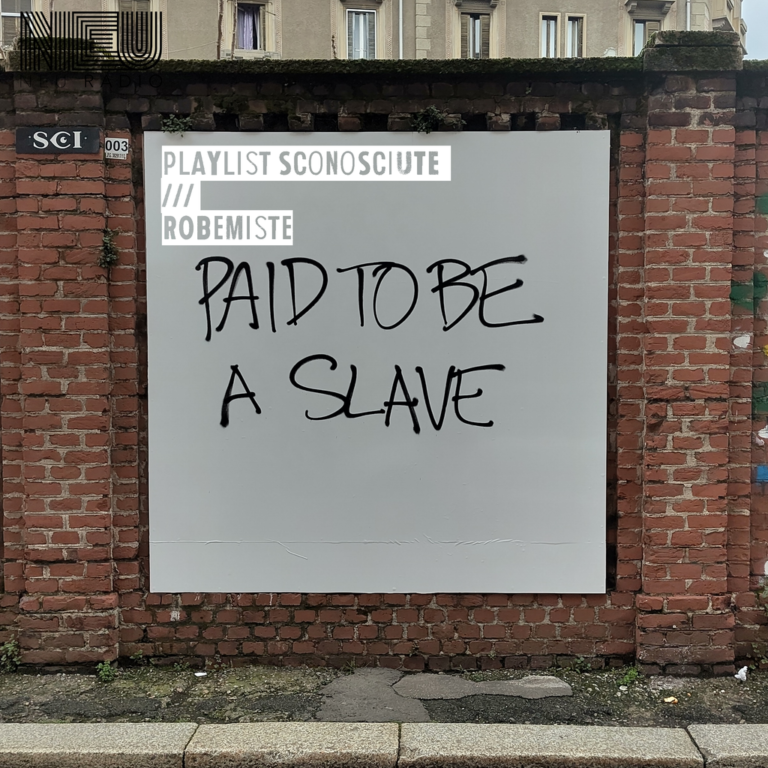 NEU
RADIO
SCI
003
PLAYLIST SCONOSCIUTE
///
ROBEMISTE
PAID TO BE
A SLAVE